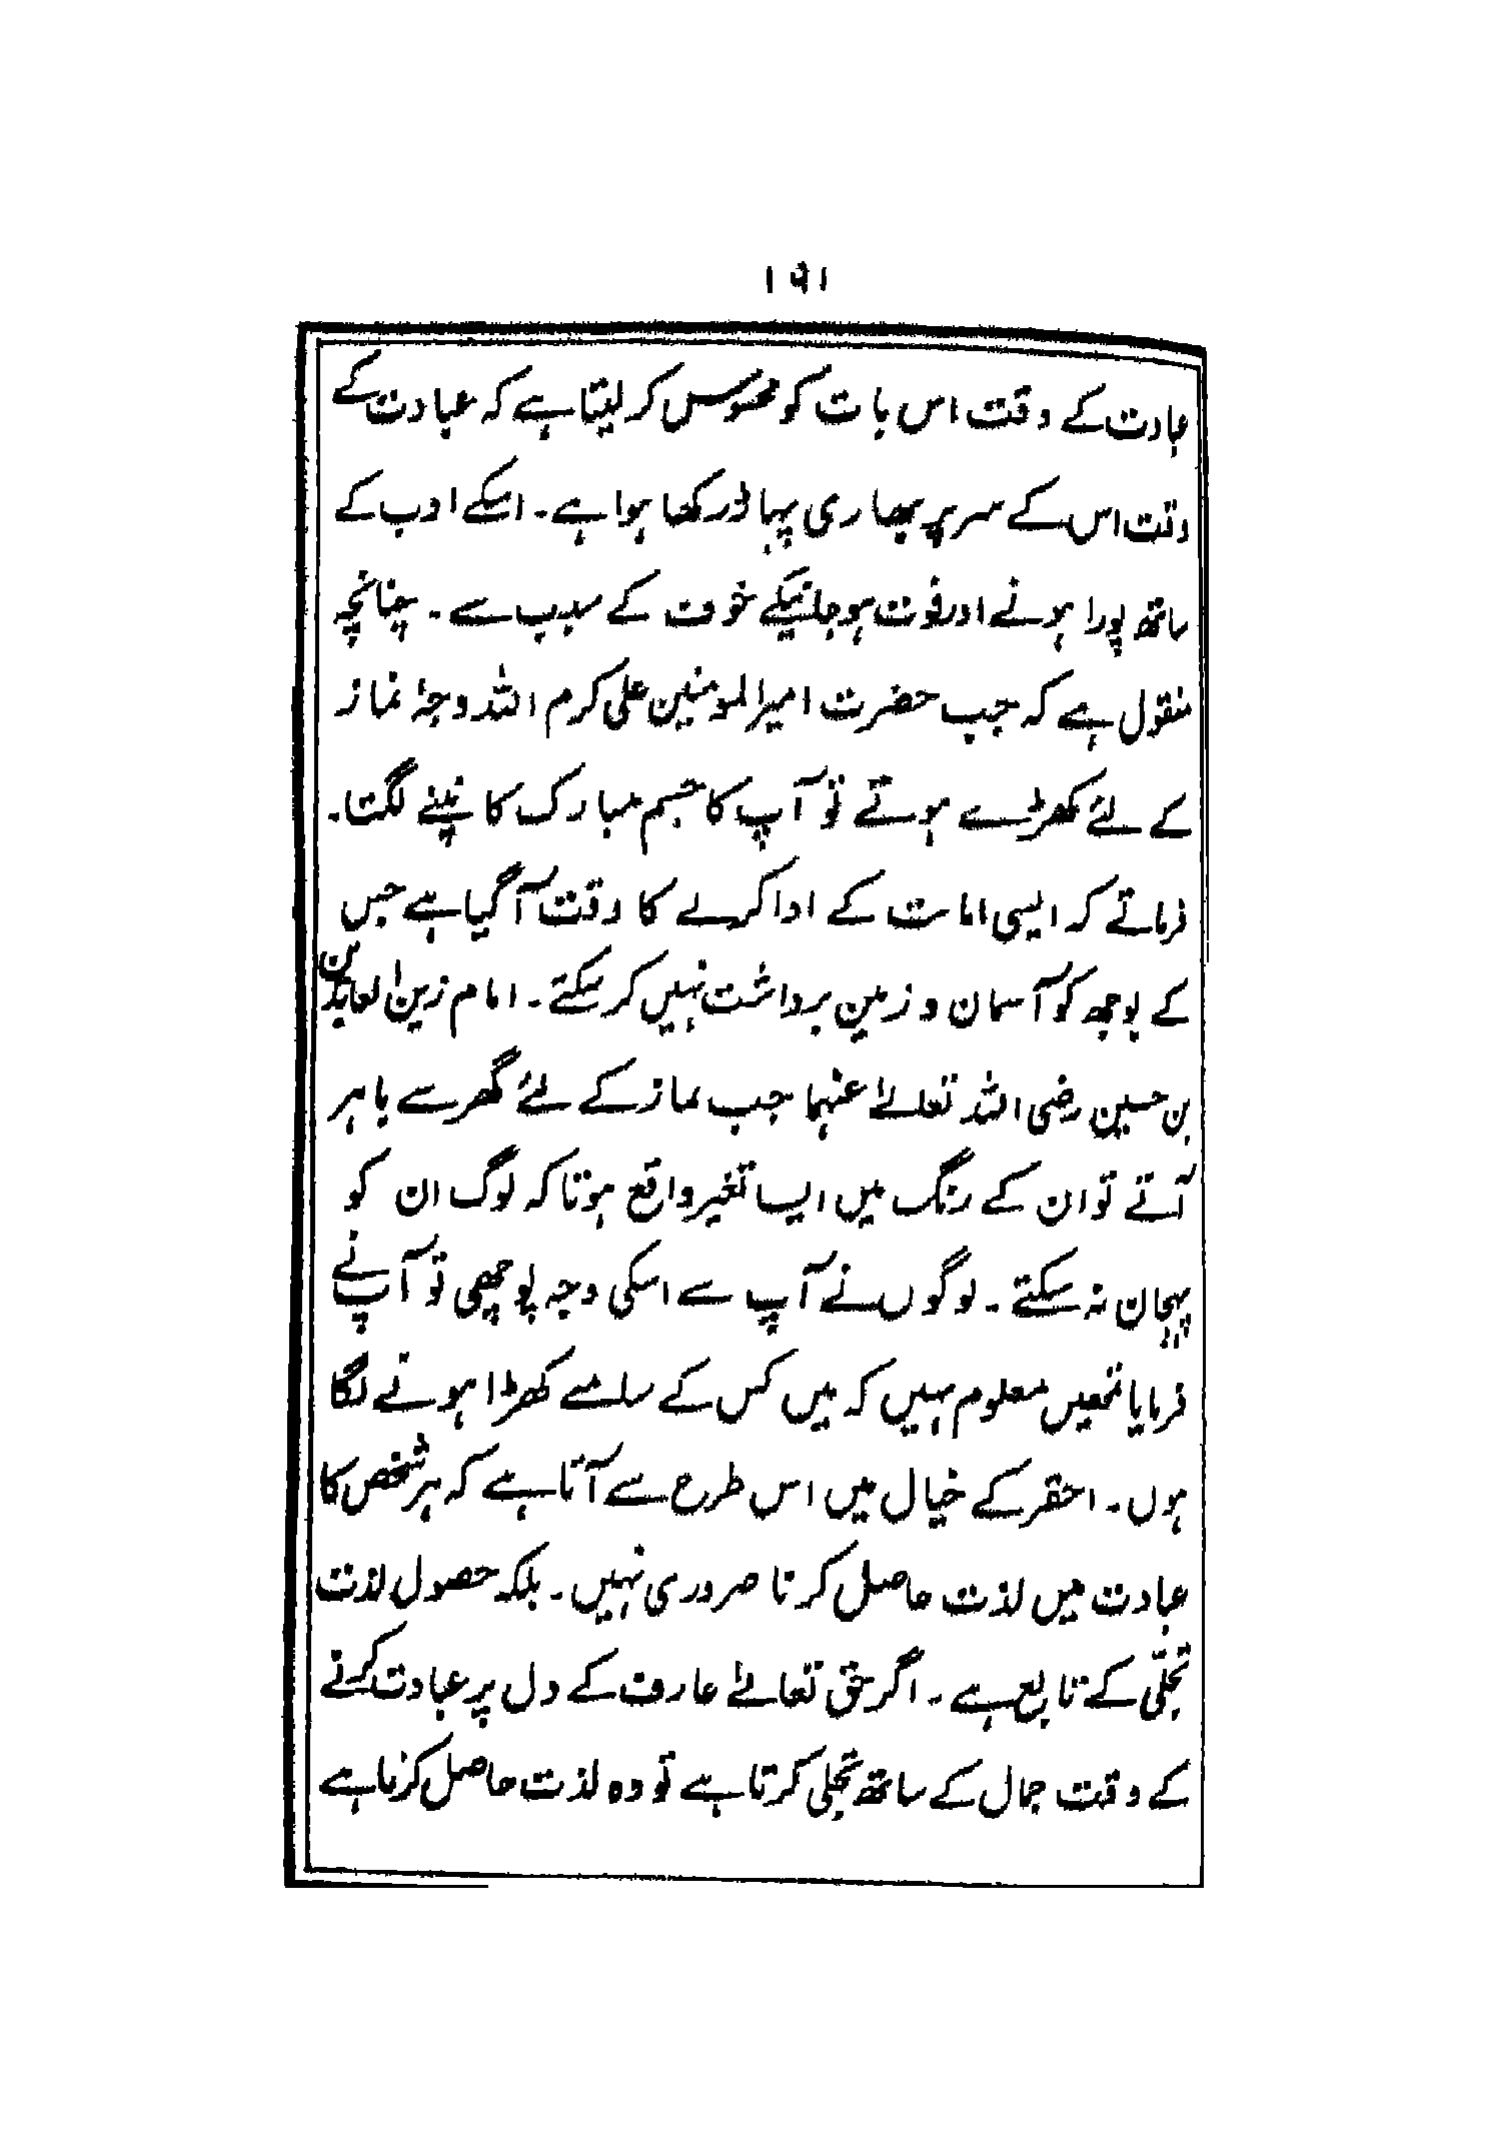 ۱۶۱
عبادت کے وقت اس بات کو محسوس کر لیتا ہے کہ عبادت کے
وقت اس کے سر پر بھاری پہاڑ رکھا ہوا ہے۔ اسکے ادب کے
ساتھ پورا ہونے اور فوت ہو جانیکے خوف کے سبب سے۔ چنانچہ
منقول ہے کہ جب حضرت امیر المومنین علی کرم اللہ وجہٗ نماز
کے لئے کھڑے ہوتے تو آپ کا جسم مبارک کا نپنے لگتا۔
فرماتے کہ ایسی امانت کے ادا کرنے کا وقت آگیا ہے جس
کے بوجھ کو آسمان و زمین برداشت نہیں کر سکتے۔ امام زین العابدین
بن حسین رضی اللہ تعالےٰ عنہما جب نماز کے لئے گھر سے باہر
آتے تو ان کے رنگ میں ایسا تغیر واقع ہوتا کہ لوگ ان کو
پہچان نہ سکتے۔ لوگوں نے آپ سے اسکی وجہ پوچھی تو آپ نے
فرمایا تمھیں معلوم نہیں کہ میں کس کے سامنے کھڑا ہونے لگا
ہوں۔ احقر کے خیال میں اس طرح سے آتا ہے کہ ہر شخص کا
عبادت میں لذت حاصل کرنا ضروری نہیں۔ بلکہ حصول لذت
تجلّی کے تابع ہے۔ اگر حق تعالےٰ عارف کے دل پر عبادت کرنے
کے وقت جمال کے ساتھ تجلی کرتا ہے تو وہ لذت حاصل کرتا ہے